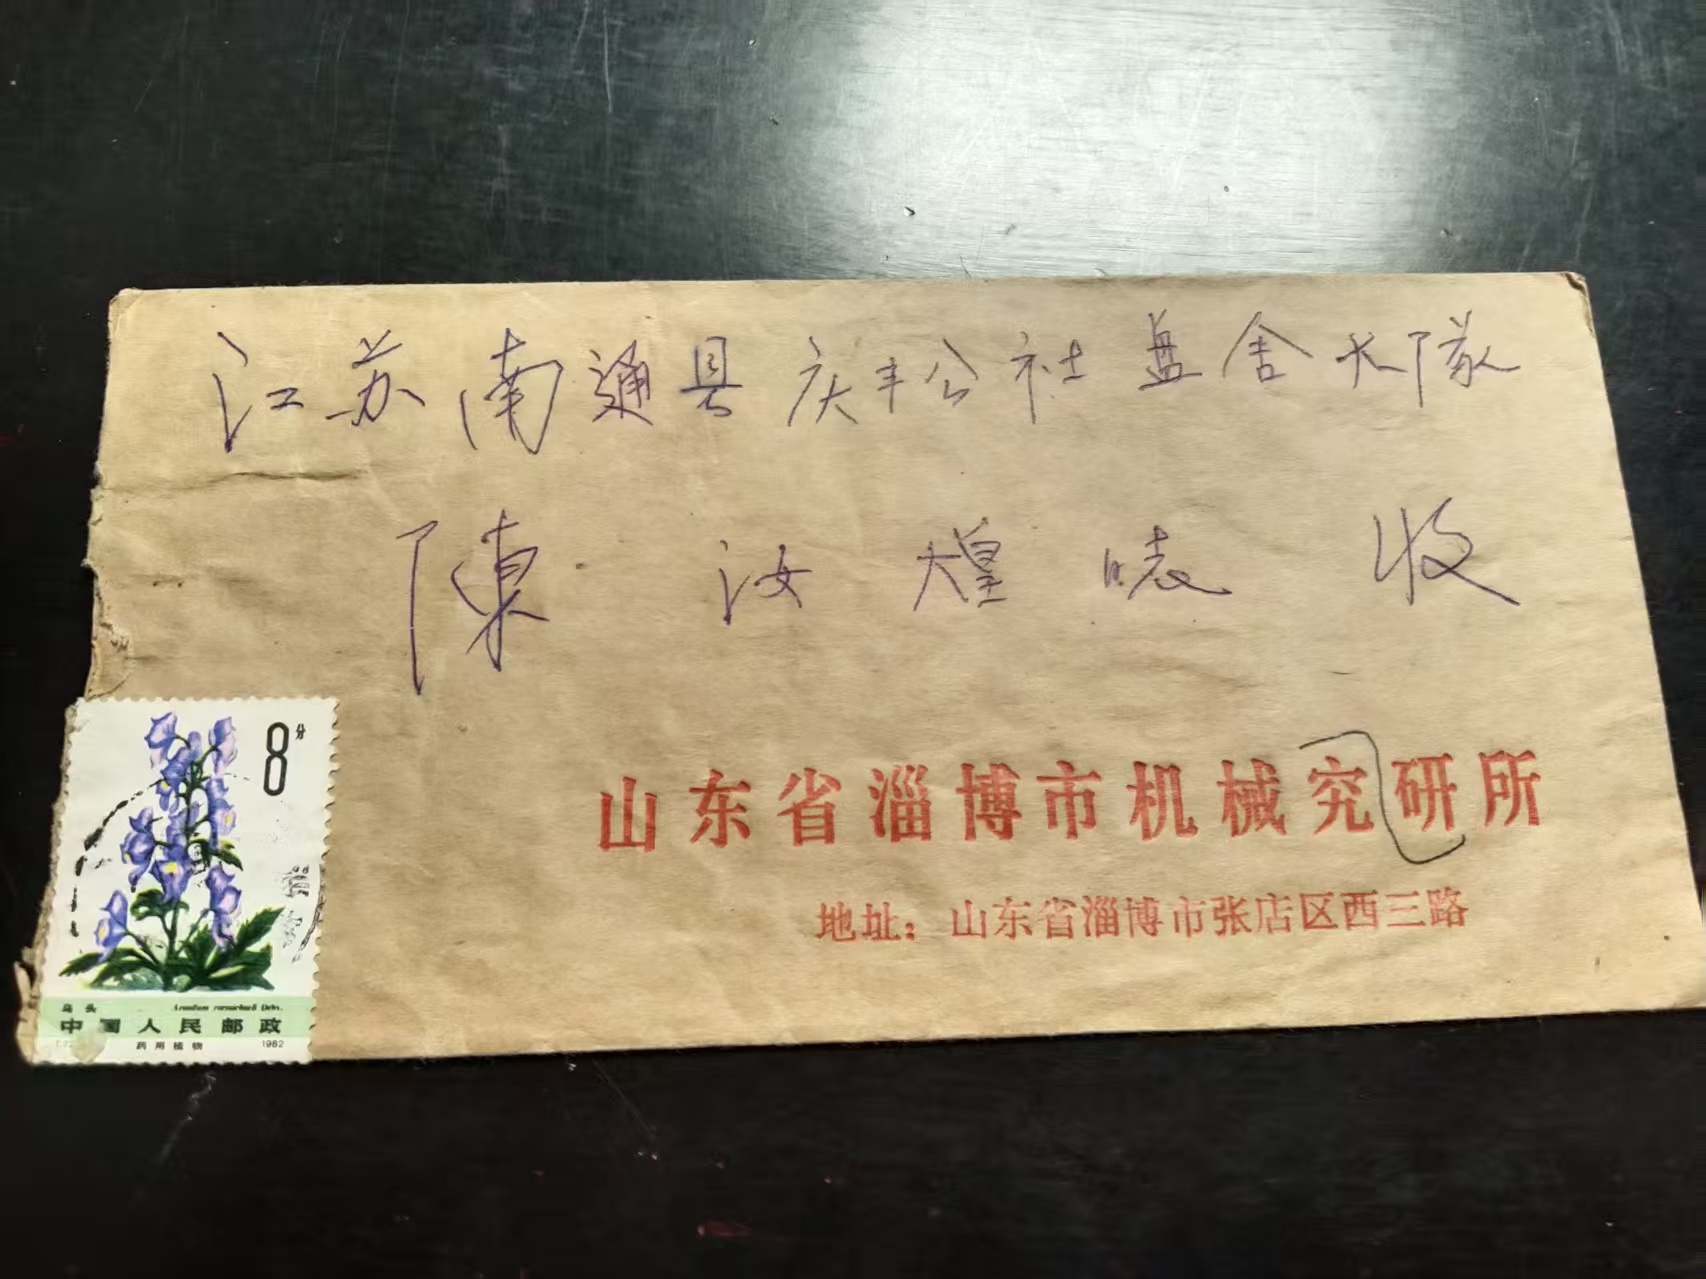 江苏南通县庆丰公社盐舍大队
陳汝煌 收
山东省淄博市机械究研所
地址：山东省淄博市张店区西三路
8分
乌头
中国人民邮政
药用植物 1982